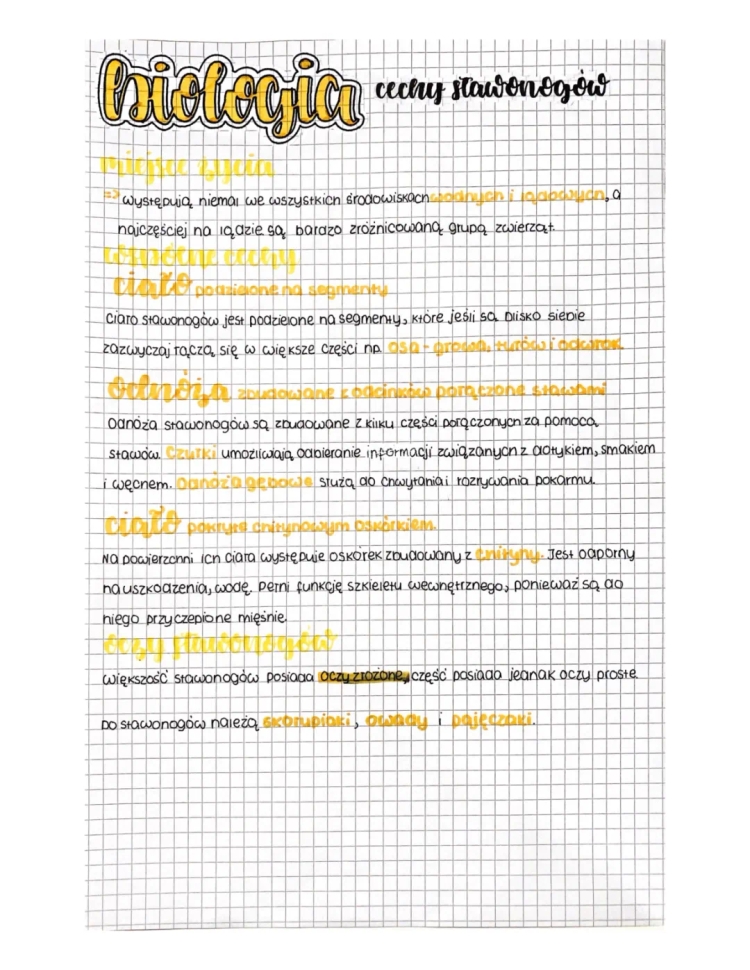 biologia cechy stawonogów
miejsce życia
=> Występują niemal we wszystkich środowiskach wodnych i lądowych, a
najczęściej na lądzie są bardzo zróżnicowaną grupą zwierząt.
wspólne cechy
ciało podzielone na segmenty
Ciało stawonogów jest podzielone na segmenty, które jeśli są blisko siebie
zazwyczaj łączą się w większe części np. osa - głowa, tułów i odwłok
odnóża zbudowane z odcinków połączone stawami
Odnóża stawonogów są zbudowane z kilku części połączonych za pomocą
stawów. Czułki umożliwiają odbieranie informacji związanych z dotykiem, smakiem
i węchem. Odnóża gębowe służą do chwytania i rozrywania pokarmu.
ciało pokryte chitynowym oskórkiem.
Na powierzchni ich ciała występuje oskórek zbudowany z chityny. Jest odporny
na uszkodzenia, wodę. Pełni funkcję szkieletu wewnętrznego, ponieważ są do
niego przyczepione mięśnie.
oczy stawonogów
Większość stawonogów posiada oczy złożone, część posiada jednak oczy proste.
Do stawonogów należą skorupiaki, owady i pajęczaki.